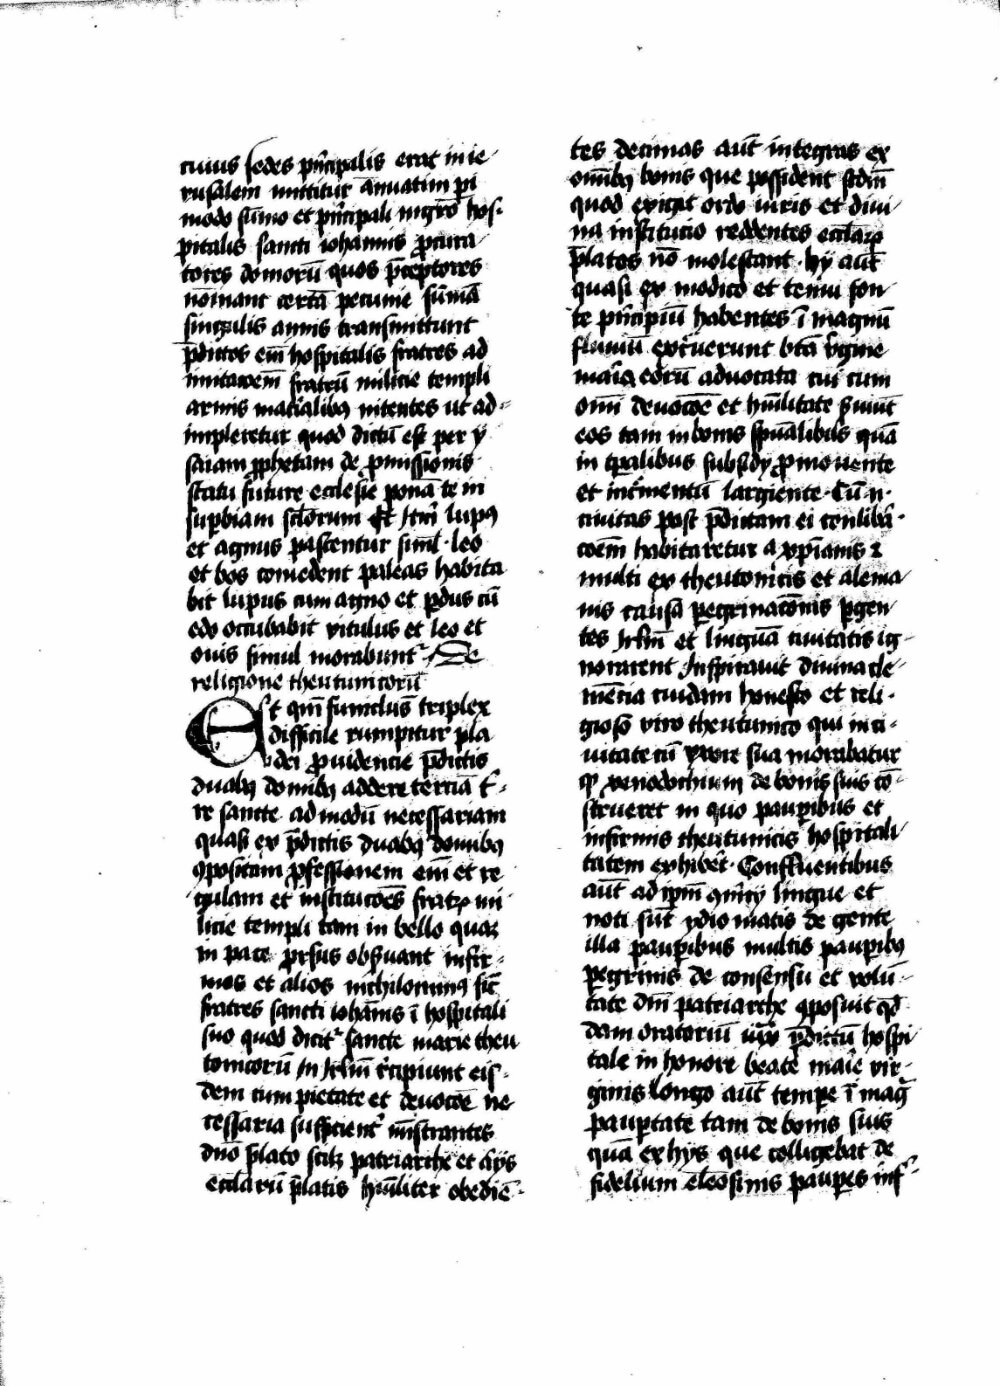 cuius sedes pn̄cipalis erat in ie
rusalem mittitur an̄uatim pi
modo sūmo et pn̄cipali mgr̄o hos-
pitalis sancti iohannis ꝓcura
tores domorū quos p̄ceptores
nōinant certā petunie sūmā
singulis annis transmittunt
p̄dictos em̄ hospitalis fratres ad
imitacoem̄ fratrū milicie templi
armis mat̄ialibꝫ nitentes ut ad-
impleretur quod dictū est per y
saiam ꝓphetam de ꝓmissionis
statu future ecclesie ponā te in
suꝑbiam sc̄lorum Et Itm̄ lupꝰ
et agnus pascentur siml̄ · leo
et bos comedent paleas habita
bit lupus cum agno et ꝑdus cū
edo occubabit vitulus et leo et
ouis simul morabunt᷑ De
religione theutunicorū
Et qm̄ funiclus triplex
difficile rumpitur pla
dei ꝓuidencie p̄dictis
duabꝫ domibꝫ addere terciā t̄-
re sancte ad modū necessariam
quasi ex p̄dictis duabꝫ domibꝫ
ꝯpositam ꝓfessionem em̄ et re
gulam et institucōes fratrꝫ mi
licie templi tam in bello quaꝫ
in pace ꝓrsus obs̄uant infir-
mos et alios nichilominꝰ sic̄
fratres sancti iohān̄is ī hospitali
suo quod dicit᷑ sancte marie theu
tonicorū in Irlm̄ r̄cipiunt eis-
dem cum pietate et deuocōe ne
cessaria sufficient᷑ mīstrantes
dn̄o p̄lato scilꝫ patriarche et aȳs
ecl̄arū p̄latis hūil̄iter obediē-
tes decimas aut̄ integras ex
om̄ibꝫ bonis que possident scdm̄
quod exigit ordo iuris et diui
na institucio reddentes eccl̄arꝫ
p̄latos nō molestant · hȳ aut̄
quasi ex modico et tenui fon
te pn̄cipiū habentes ī magnū
fluuiū exc̄uerunt btā v̄gine
maīa eorū aduocata cui cum
om̄i deuocōe et hūil̄itate s̄uiut̄
eos tam in bonis sp̄ualibus quā
in tꝑalibus subsidȳ ꝓmouente
et inc̄mentū largiente · Cū n̄ ·
ciuitas post p̄dictam ei
coēm habitaretur a xp̄ianis ⁊
multi ex theutonicis et alema
nis causā ꝑegrinacōnis ꝑgen
tes Irlm̄ et linguā ciuitatis ig-
norarent Inspirauit diuina cle-
mēcia cuidam honesto et reli-
gioso viro theutunico qui in ci-
uitate cū vxore sua morabatur
ꝙ xenodochium de bonis suis cō-
strueret in quo pauꝑibus et
infirmis theutunicis hospitali
tatem exhibēt · Confluentibus
aut̄ ad ip̄m lingue et
noti sui ydiomatis de gente
illa pauꝑibus multis pauꝑibꝫ
ꝑegrinis de consensu et volū-
tate dn̄i patriarche ꝯposuit qd̄
dam oratoriū iux̄ p̄dictū hospi
tale in honore beate maīe vir-
ginis longo aut̄ tempe ī maḡ
pauꝑtate tam de bonis suis
quā ex hȳs que colligebat de
fidelium elēosinis pauꝑes inf̄-